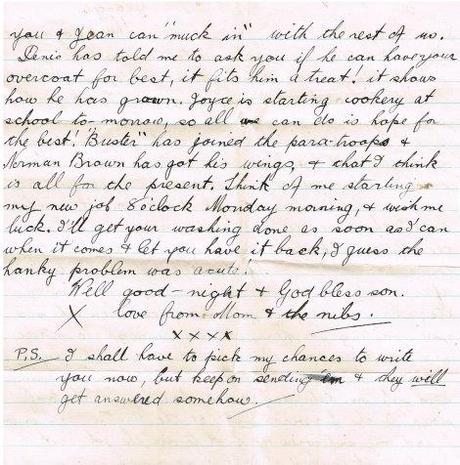 you & Joan can "muck in" with the rest of us.
Denis has told me to ask you if he can have your
overcoat for best, it fits him a treat! it shows
how he has grown. Joyce is starting cookery at
school to-morrow, so all we can do is hope for
the best! "Buster" has joined the para-troops &
Norman Brown has got his wings, & that I think
is all for the present. Think of me starting
my new job 8 o'clock Monday morning, & wish me
luck. I'll get your washing done as soon as I can
when it comes & let you have it back, I guess the
hanky problem was acute!
Well good-night & God bless son.
X love from Mom & the nibs.
x x x x
P.S. I shall have to pick my chances to write
you now, but keep on sending em & they will
get answered somehow.